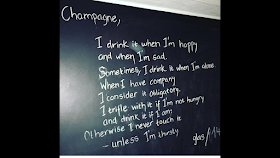 Champagne,
I drink it when I'm happy
and when I'm sad.
Sometimes, I drink it when I'm alone.
When I have company
I consider it obligatory.
I trifle with it if I'm not hungry
and drink it if I am.
Otherwise I never touch it
- unless I'm thirsty
glas/14